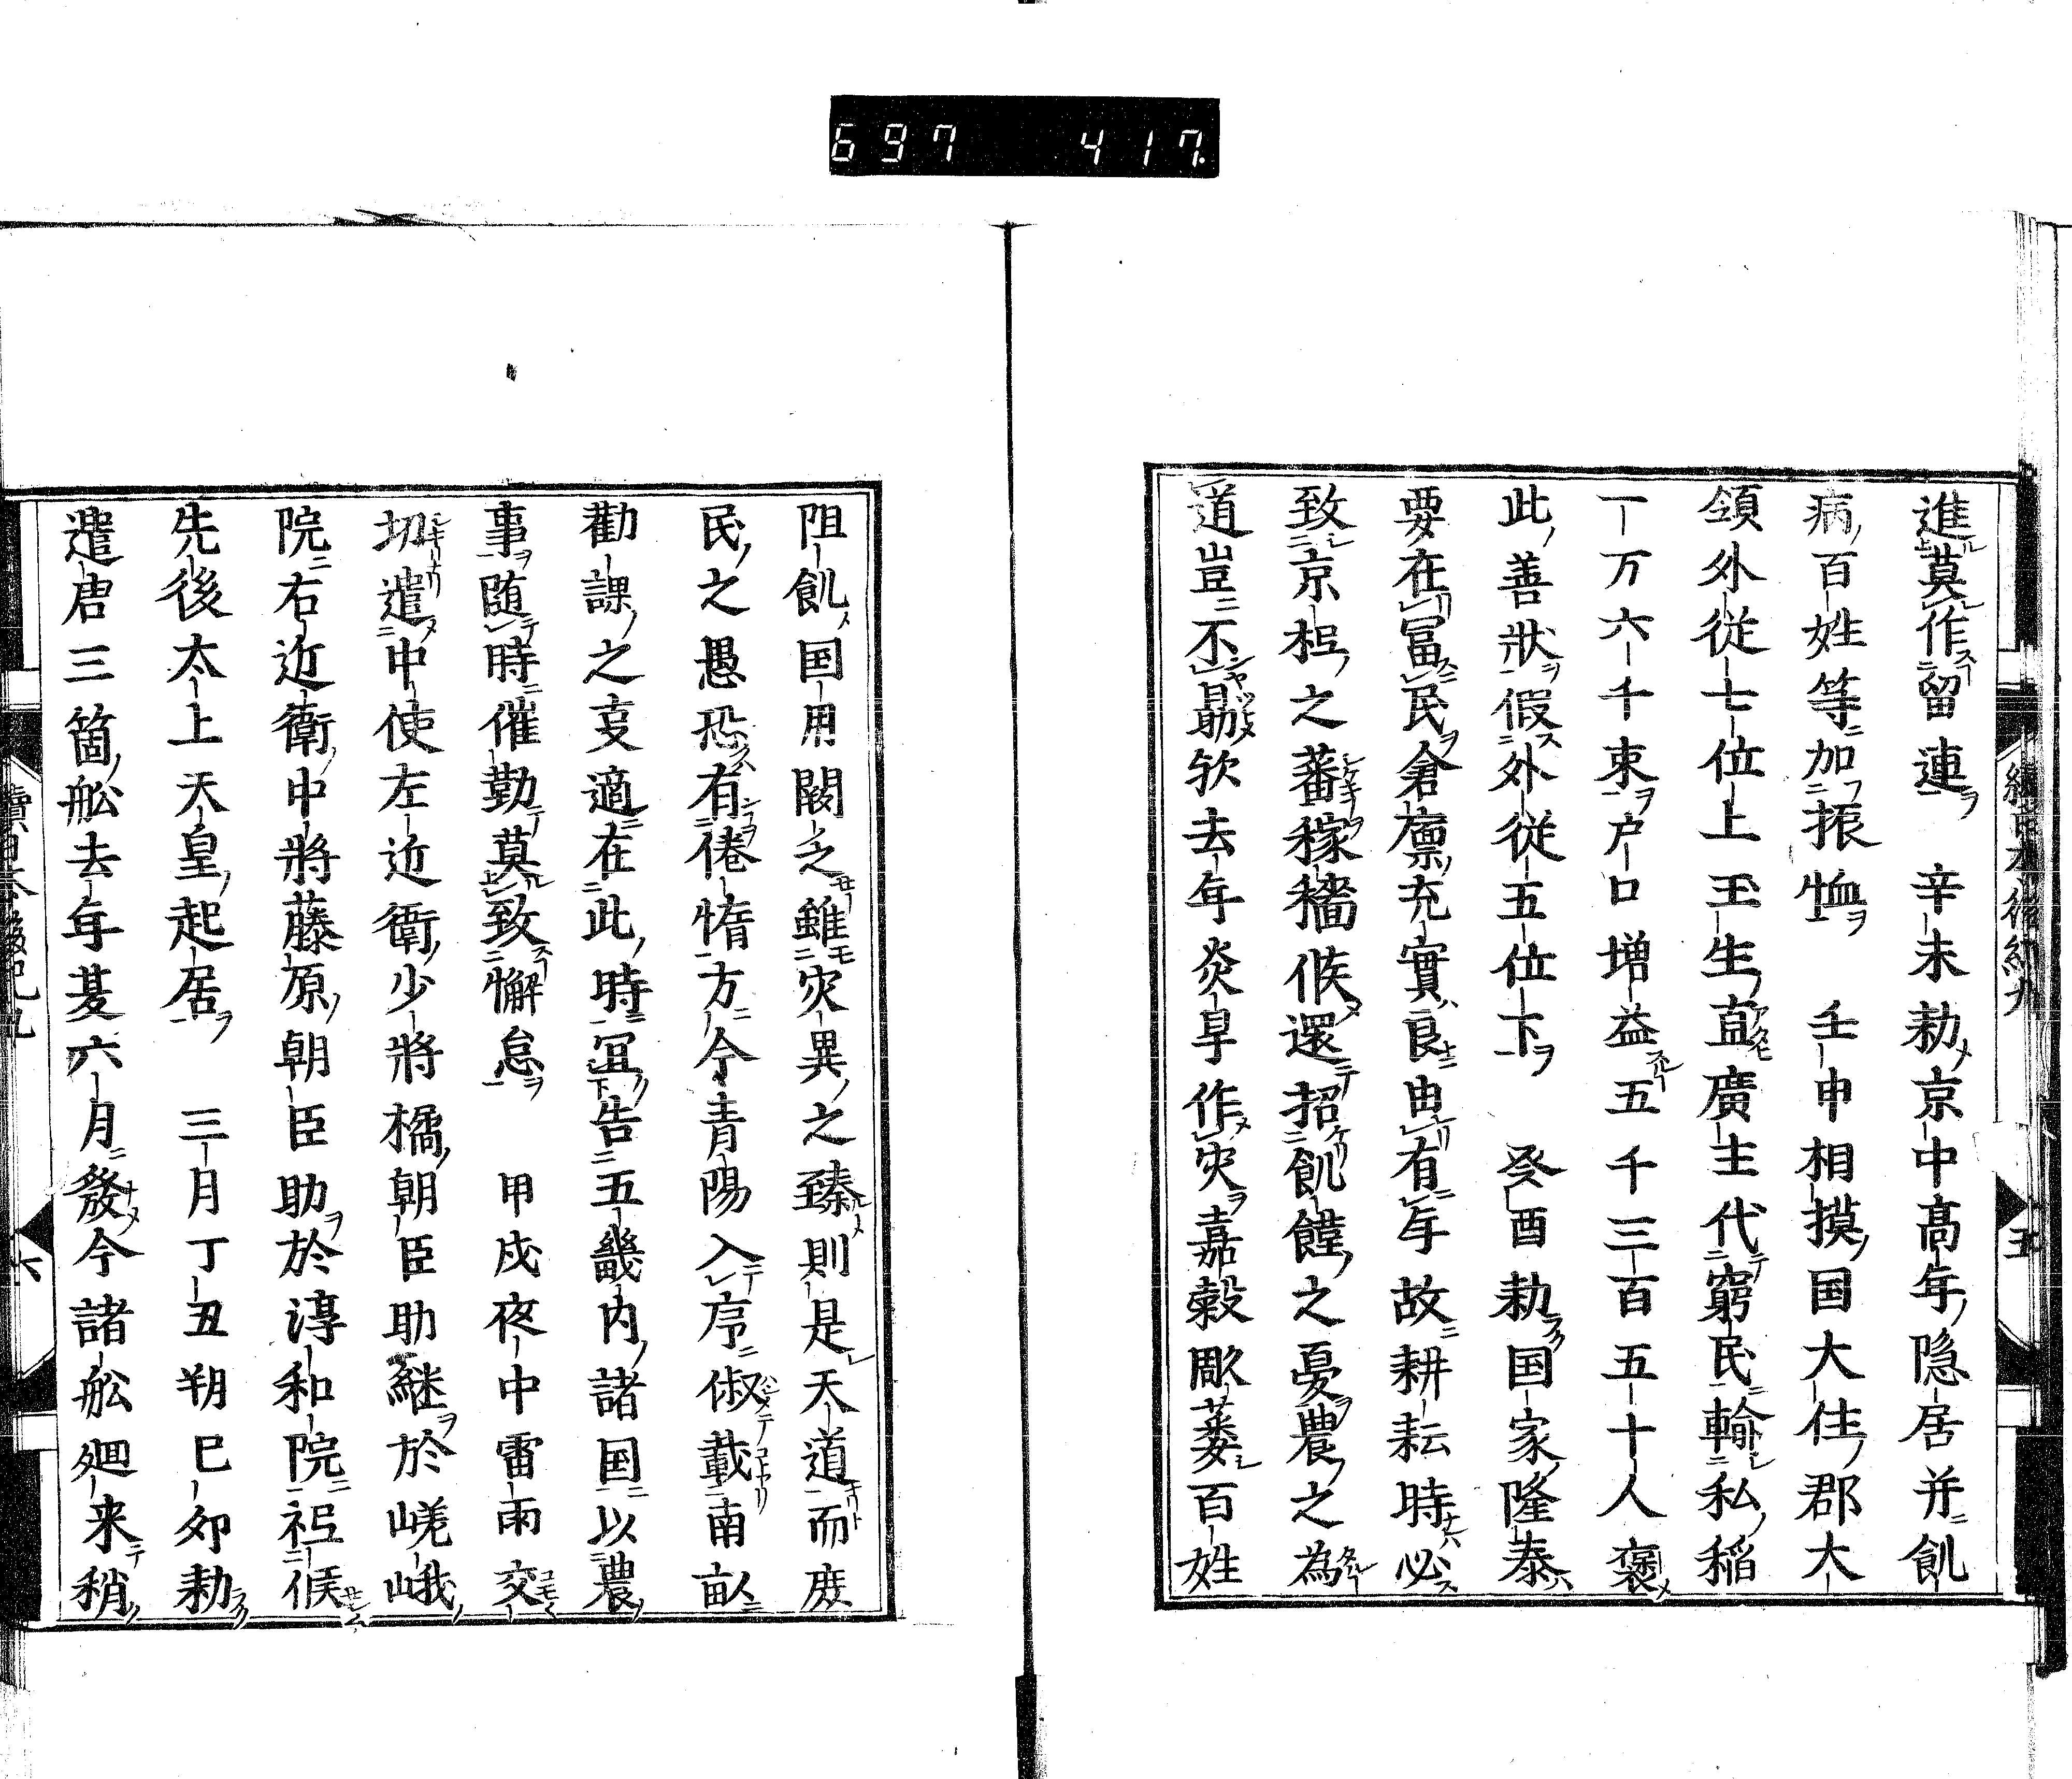 697 417
進莫作留連 辛未勅京中髙年隠居并飢
病百姓等加振恤 壬申相摸国大住郡大
領外従七位上壬生直廣主代窮民輸私稲
一万六千束户口増益五千三百五十人褒
此善状假外従五位下 癸酉勅国家隆泰
要在冨民倉廪充實良由有年故耕耘時必
致京坻之蕃稼穡候還招飢饉之憂農之為
道豈不勗欤去年炎旱作灾嘉穀彫萎百姓
阻飢国用闕乏雖灾異之臻則是天道而庶
民之愚恐有倦惰方今青陽入序俶載南畝
勸課之支適在此時冝告五畿内諸国以農
事随時催勤莫致懈怠 甲戌夜中雷雨交
切遣中使左近衛少将橘朝臣助継於嵯峨
院右近衛中将藤原朝臣助於淳和院祗候
先後太上天皇起居 三月丁丑朔己卯勅
遣唐三箇舩去年夏六月發今諸舩廻来稍
續日本後紀九
五
六